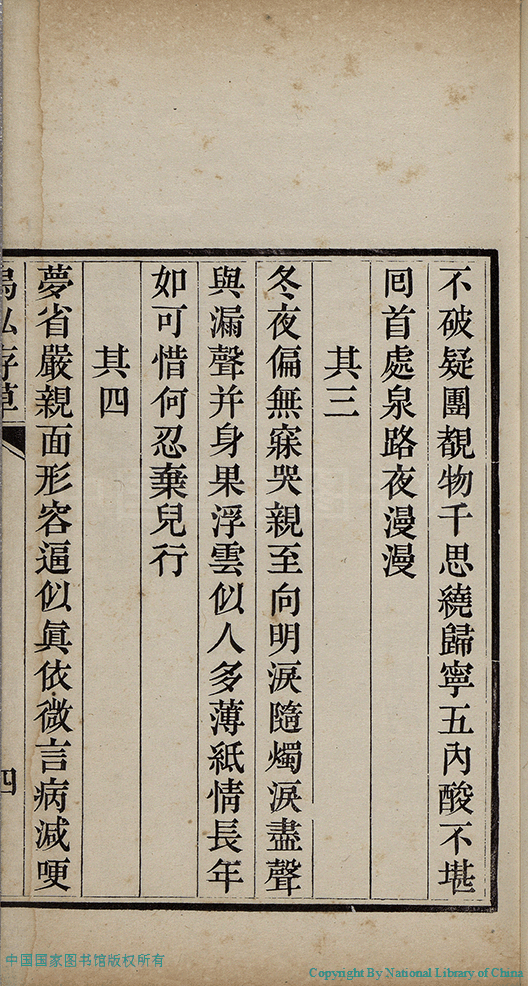 不破疑團覩物千思繞歸寧五內酸不堪
囘首處泉路夜漫漫
其三
冬夜偏無寐哭親至向明淚隨燭淚盡聲
與漏聲幷身果浮雲似人多薄紙情長年
如可惜何忍棄兒行
其四
夢省嚴親面形容逼似眞依微言病減哽
存草
四
中国国家图书馆版权所有
Copyright By National Library of China